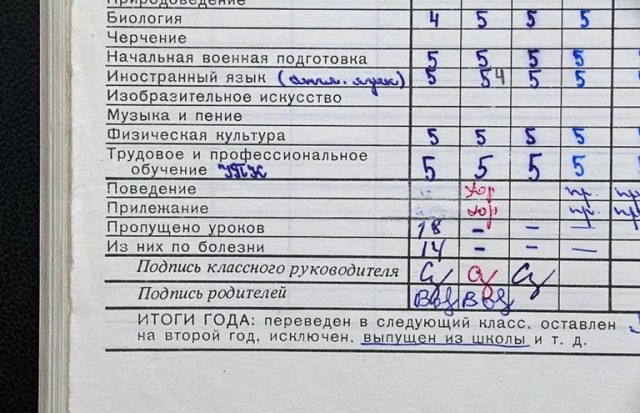 Природоведение
Биология 4 5 5 5
Черчение
Начальная военная подготовка 5 5 5 5 5
Иностранный язык (англ. язык) 5 5 4 5 5 5
Изобразительное искусство
Музыка и пение
Физическая культура 5 5 5 5
Трудовое и профессиональное
обучение УПК 5 5 5 5
Поведение - Хор пр. пр
Прилежание Хор пр. пр
Пропущено уроков 18 – – –
Из них по болезни 14 – – –
Подпись классного руководителя
Подпись родителей
ИТОГИ ГОДА: переведен в следующий класс, оставлен
на второй год, исключен, выпущен из школы и т. д.